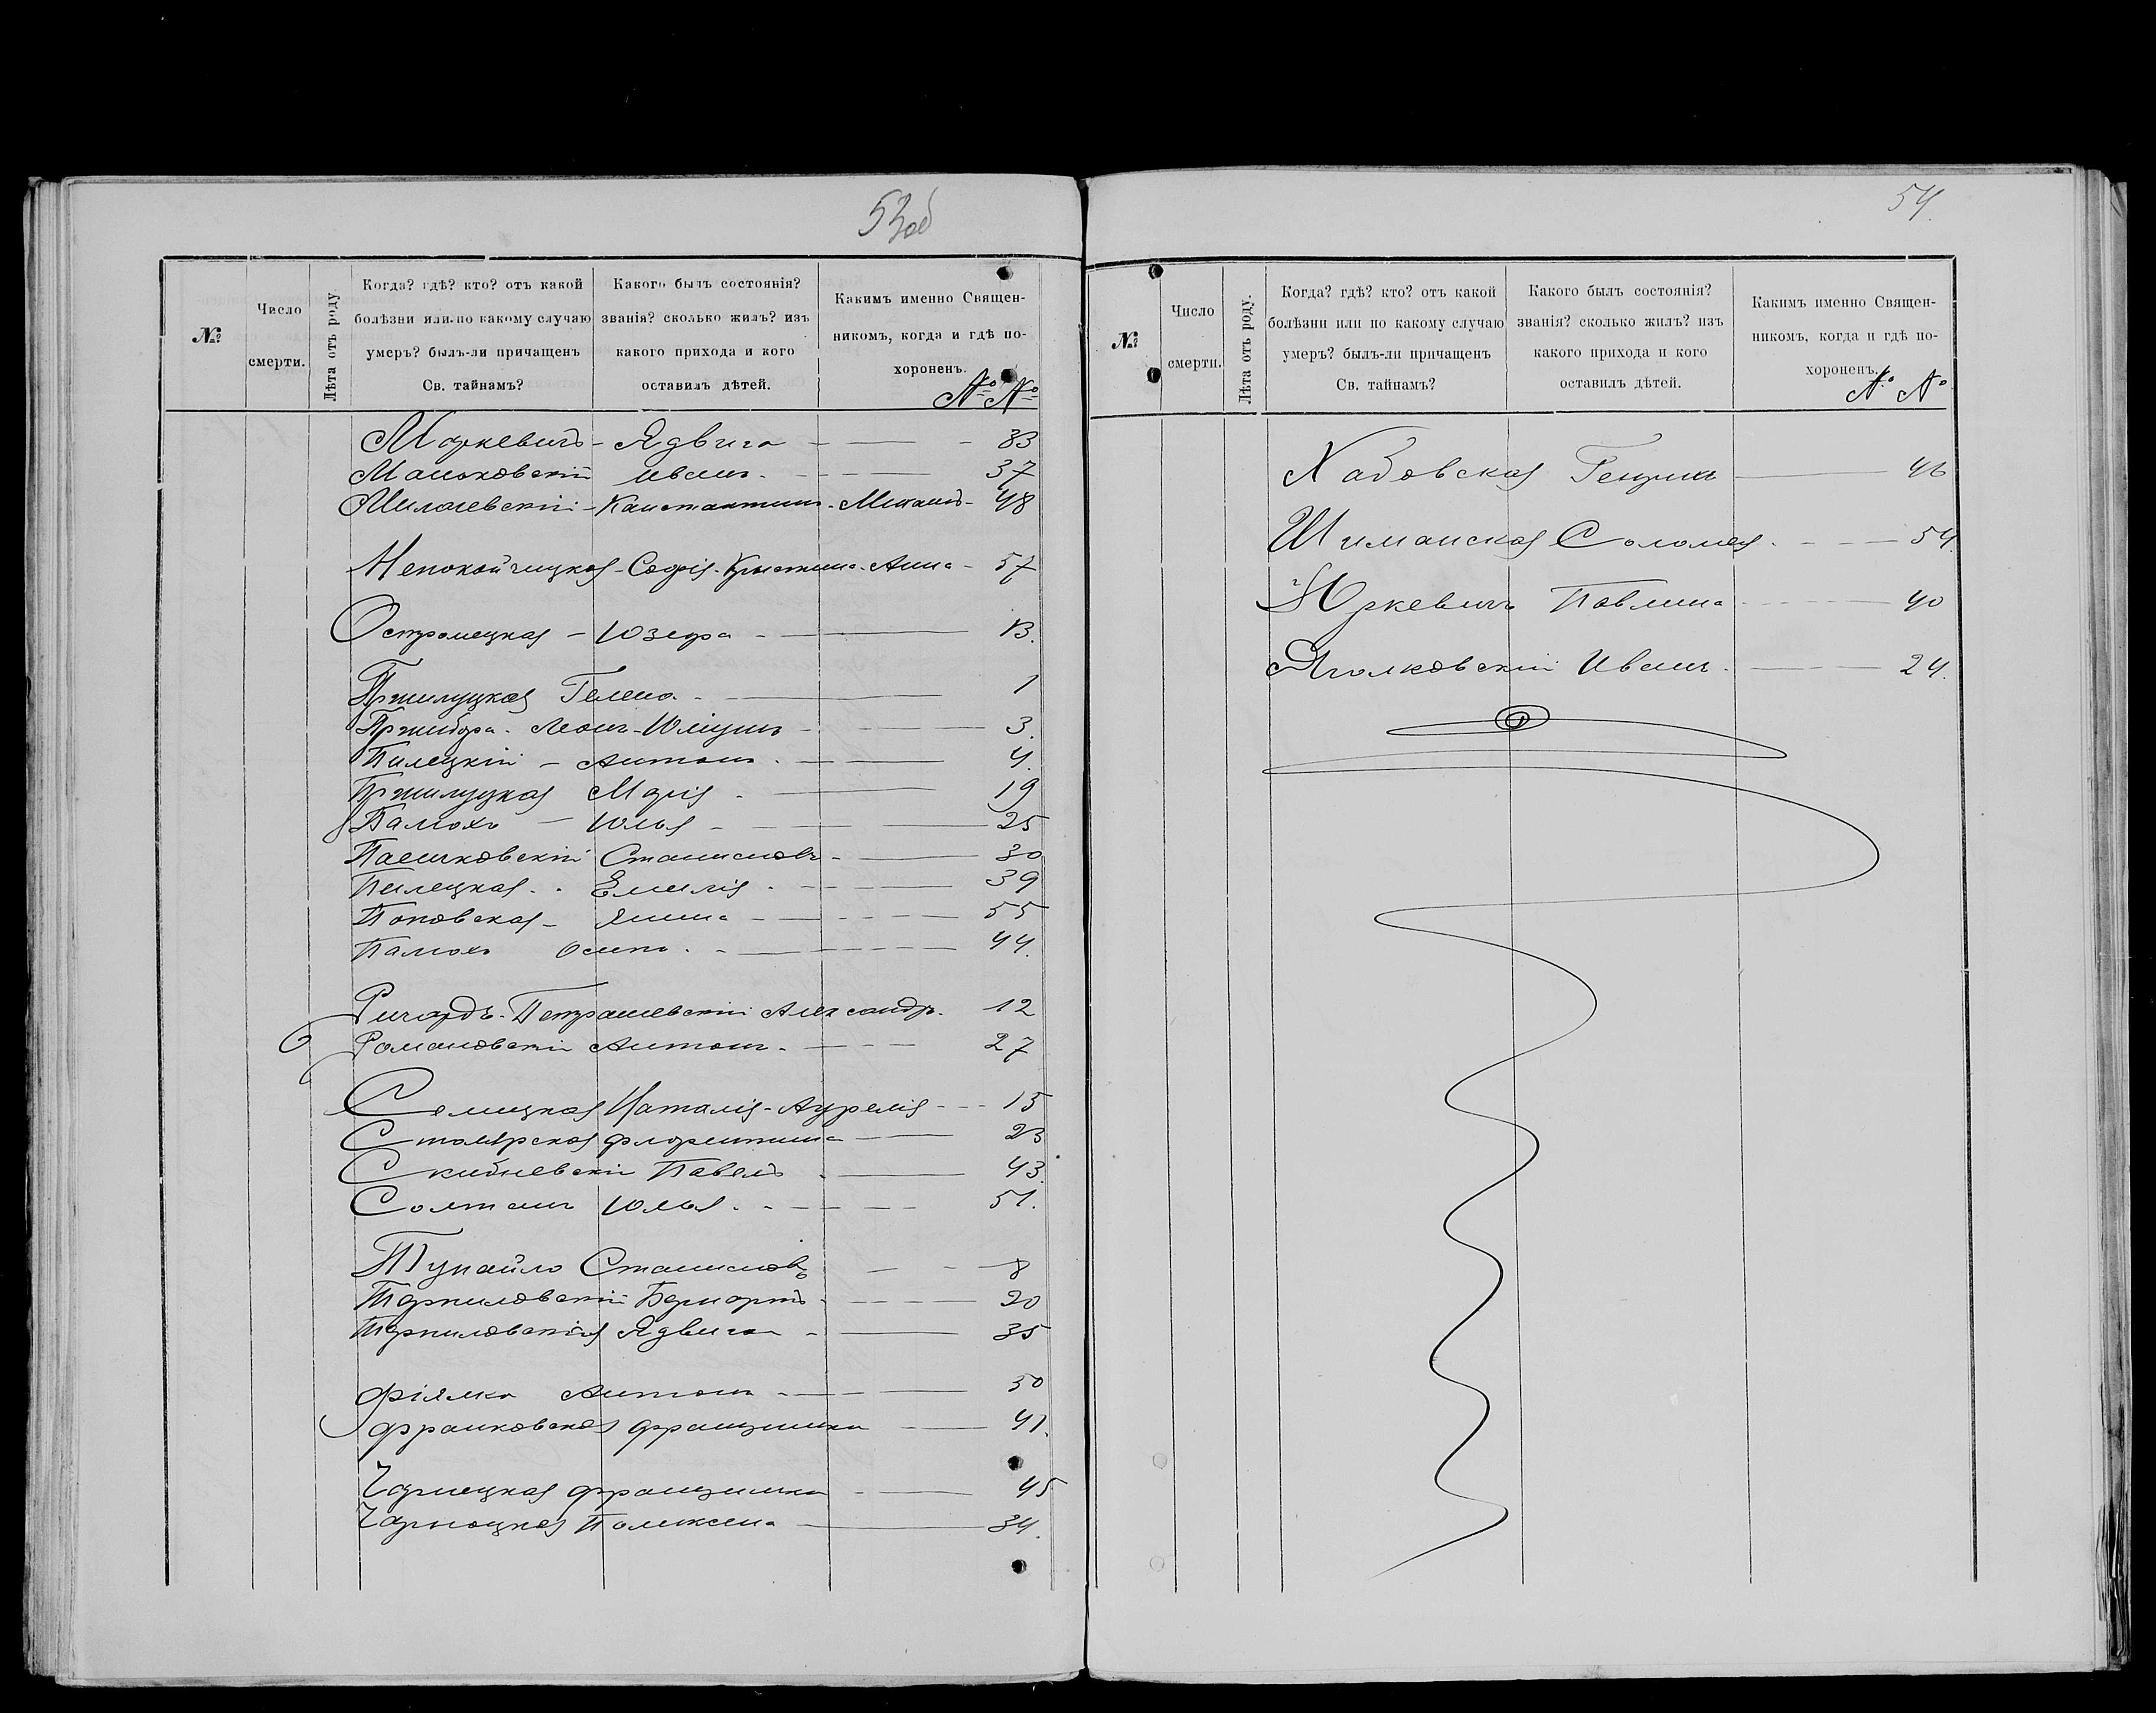 53об
№
Число
смерти.
Лѣта отъ роду.
Когда? гдѣ? кто? отъ какой
болѣзни или по какому случаю
умеръ? былъ-ли причащенъ
Св. тайнамъ?
Какого былъ состоянія?
званія? сколько жилъ? изъ
какого прихода и кого
оставилъ дѣтей.
Какимъ именно Священ-
никомъ, когда и гдѣ по-
хороненъ.
№ №
Маркевичъ - Ядвига - 33
Маньковскій Иванъ - 37
Милаевскій - Константинъ - Михаилъ - 48
Непокойчицкая - Софія - Крыстина - Анна - 57
Остромецкая - Юзефа - 13.
Пржилуцкая Гелена - 1
Пржибора - Леонъ - Юліушъ - 3.
Пилецкій - Антонъ - 4.
Пржилуцкая Марія - 19
Палюхъ - Юлья - 25
Станиславъ - 30
Пилецкая - Емилія - 39
Поповская - Янина - 55
Палюхъ Осипъ - 44.
Ричардъ-Петрашевскій Александръ - 12
Романовскій Антонъ - 27
Наталія-Аурелія - 15
Столярская Флорентина - 23
Скибневскій Павелъ - 43.
Солтанъ Юлья - 51.
Тупайло Станиславъ - 8
Терпиловскій Бернардъ - 20
Терпиловская Ядвига - 35
Фіялко Антонъ - 50
Франковская Францишка - 41.
Чарнецкая Францишка - 45
Чарноцкая Поликсена - 34.
54.
№
Число
смерти.
Лѣта отъ роду.
Когда? гдѣ? кто? отъ какой
болѣзни или по какому случаю
умеръ? былъ-ли причащенъ
Св. тайнамъ?
Какого былъ состоянія?
званія? сколько жилъ? изъ
какого прихода и кого
оставилъ дѣтей.
Какимъ именно Священ-
никомъ, когда и гдѣ по-
хороненъ.
№ №
Хабовская - 46
Шиманская Саломея - 54.
Юркевичъ Павлина - 40
Яголковскій Иванъ - 24.